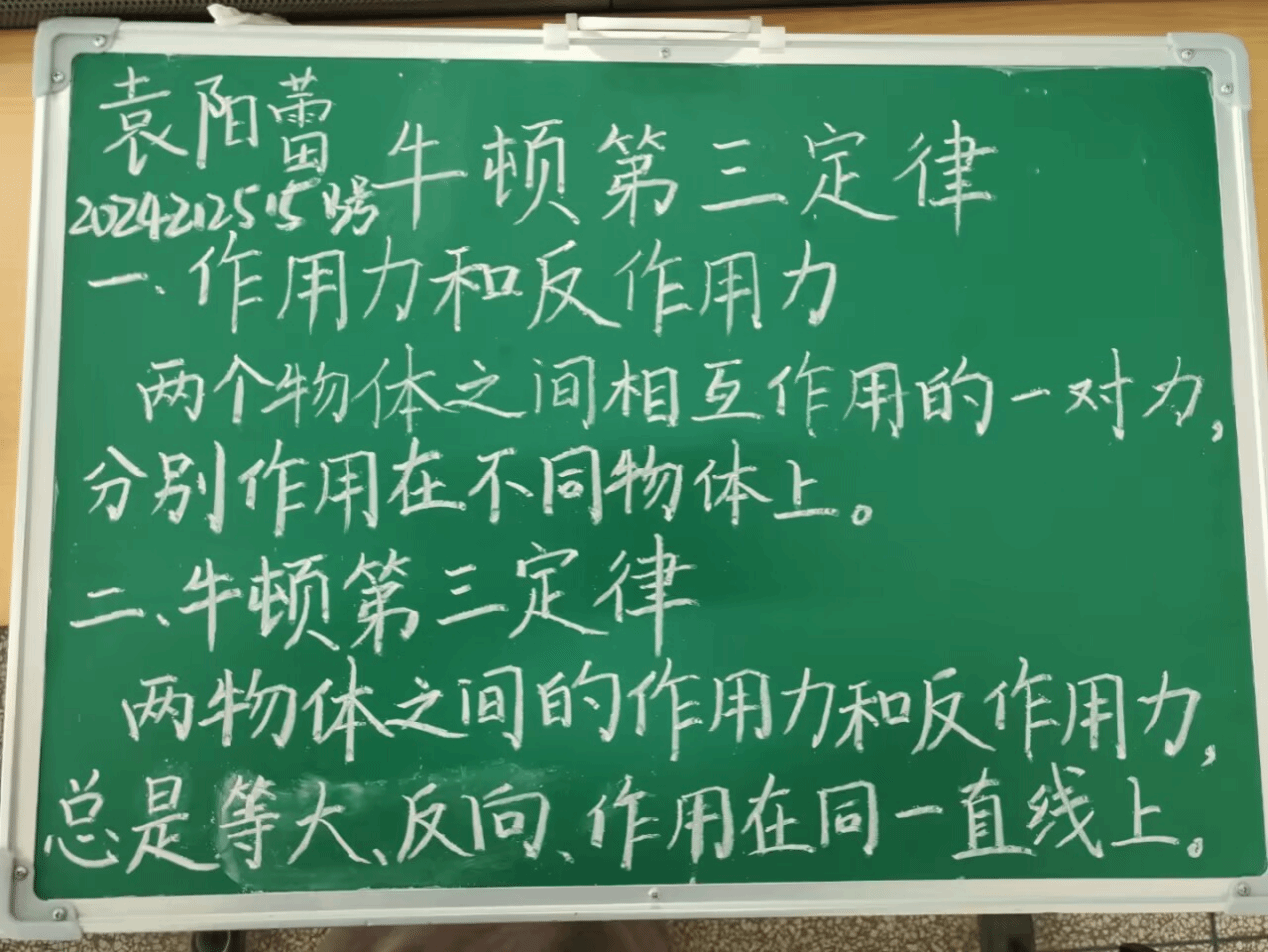 袁阳蕾
牛顿第三定律
一、作用力和反作用力
两个物体之间相互作用的一对力,
分别作用在不同物体上。
二、牛顿第三定律
两物体之间的作用力和反作用力,
总是等大、反向、作用在同一直线上。